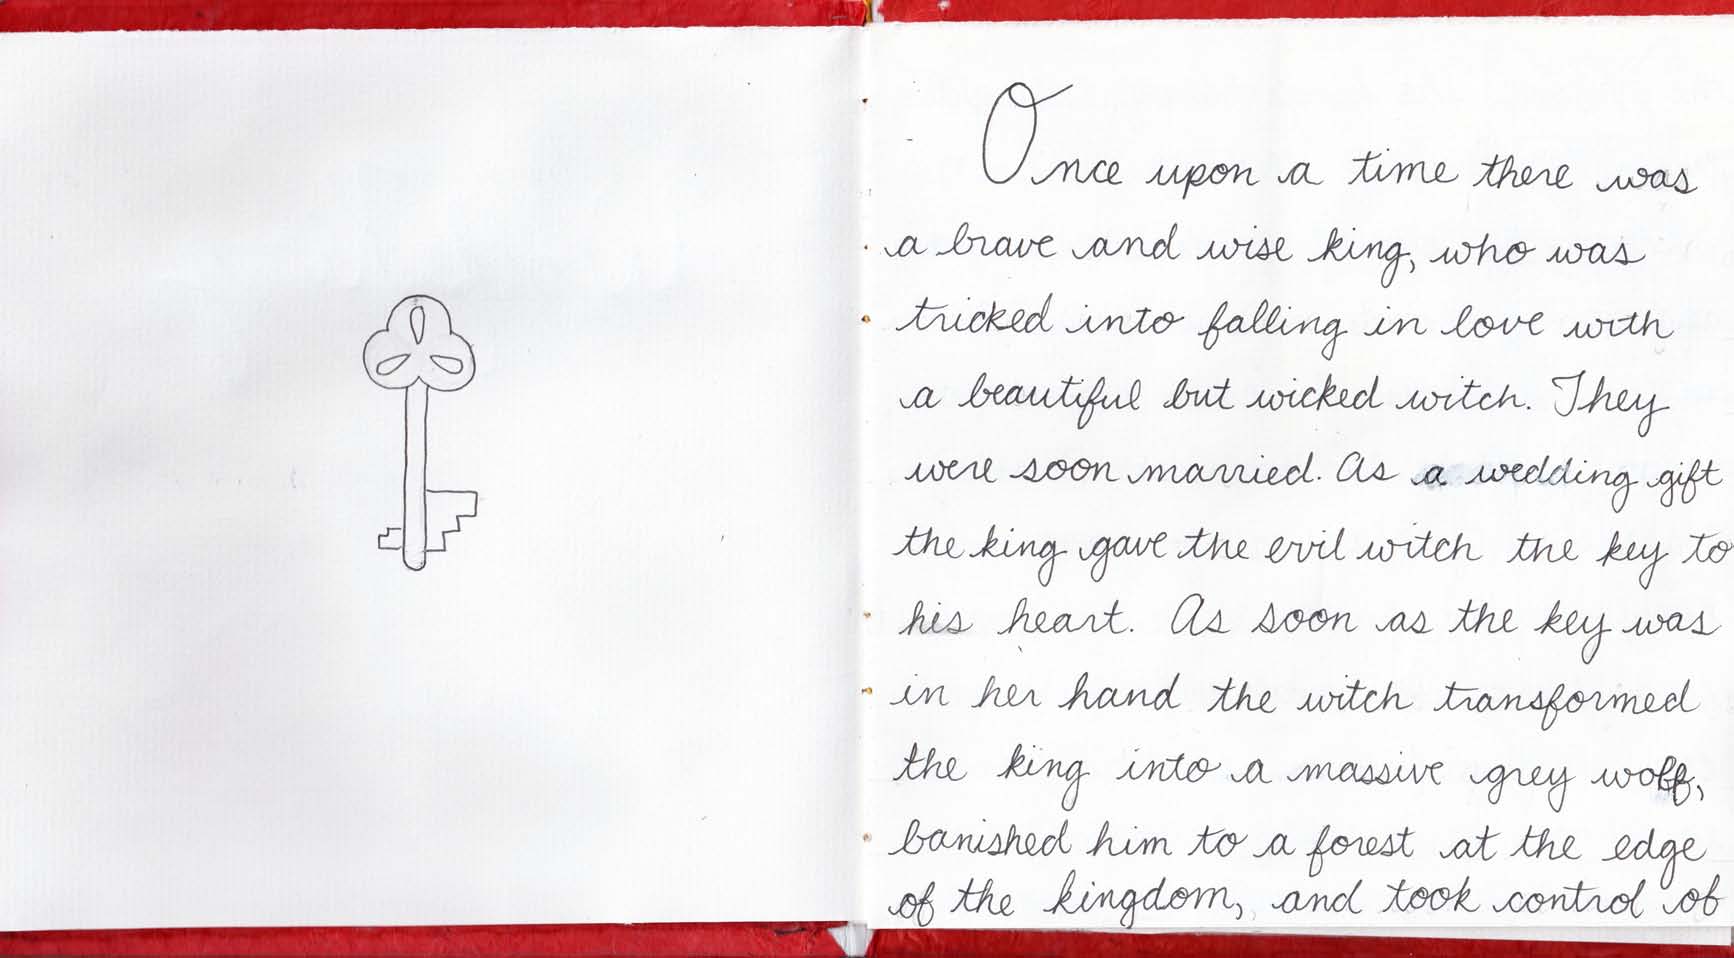 Once upon a time there was
a brave and wise king, who was
tricked into falling in love with
a beautiful but wicked witch. They
were soon married. As a wedding gift
the king gave the evil witch the key to
his heart. As soon as the key was
in her hand the witch transformed
the king into a massive grey wolf,
banished him to a forest at the edge
of the kingdom, and took control of